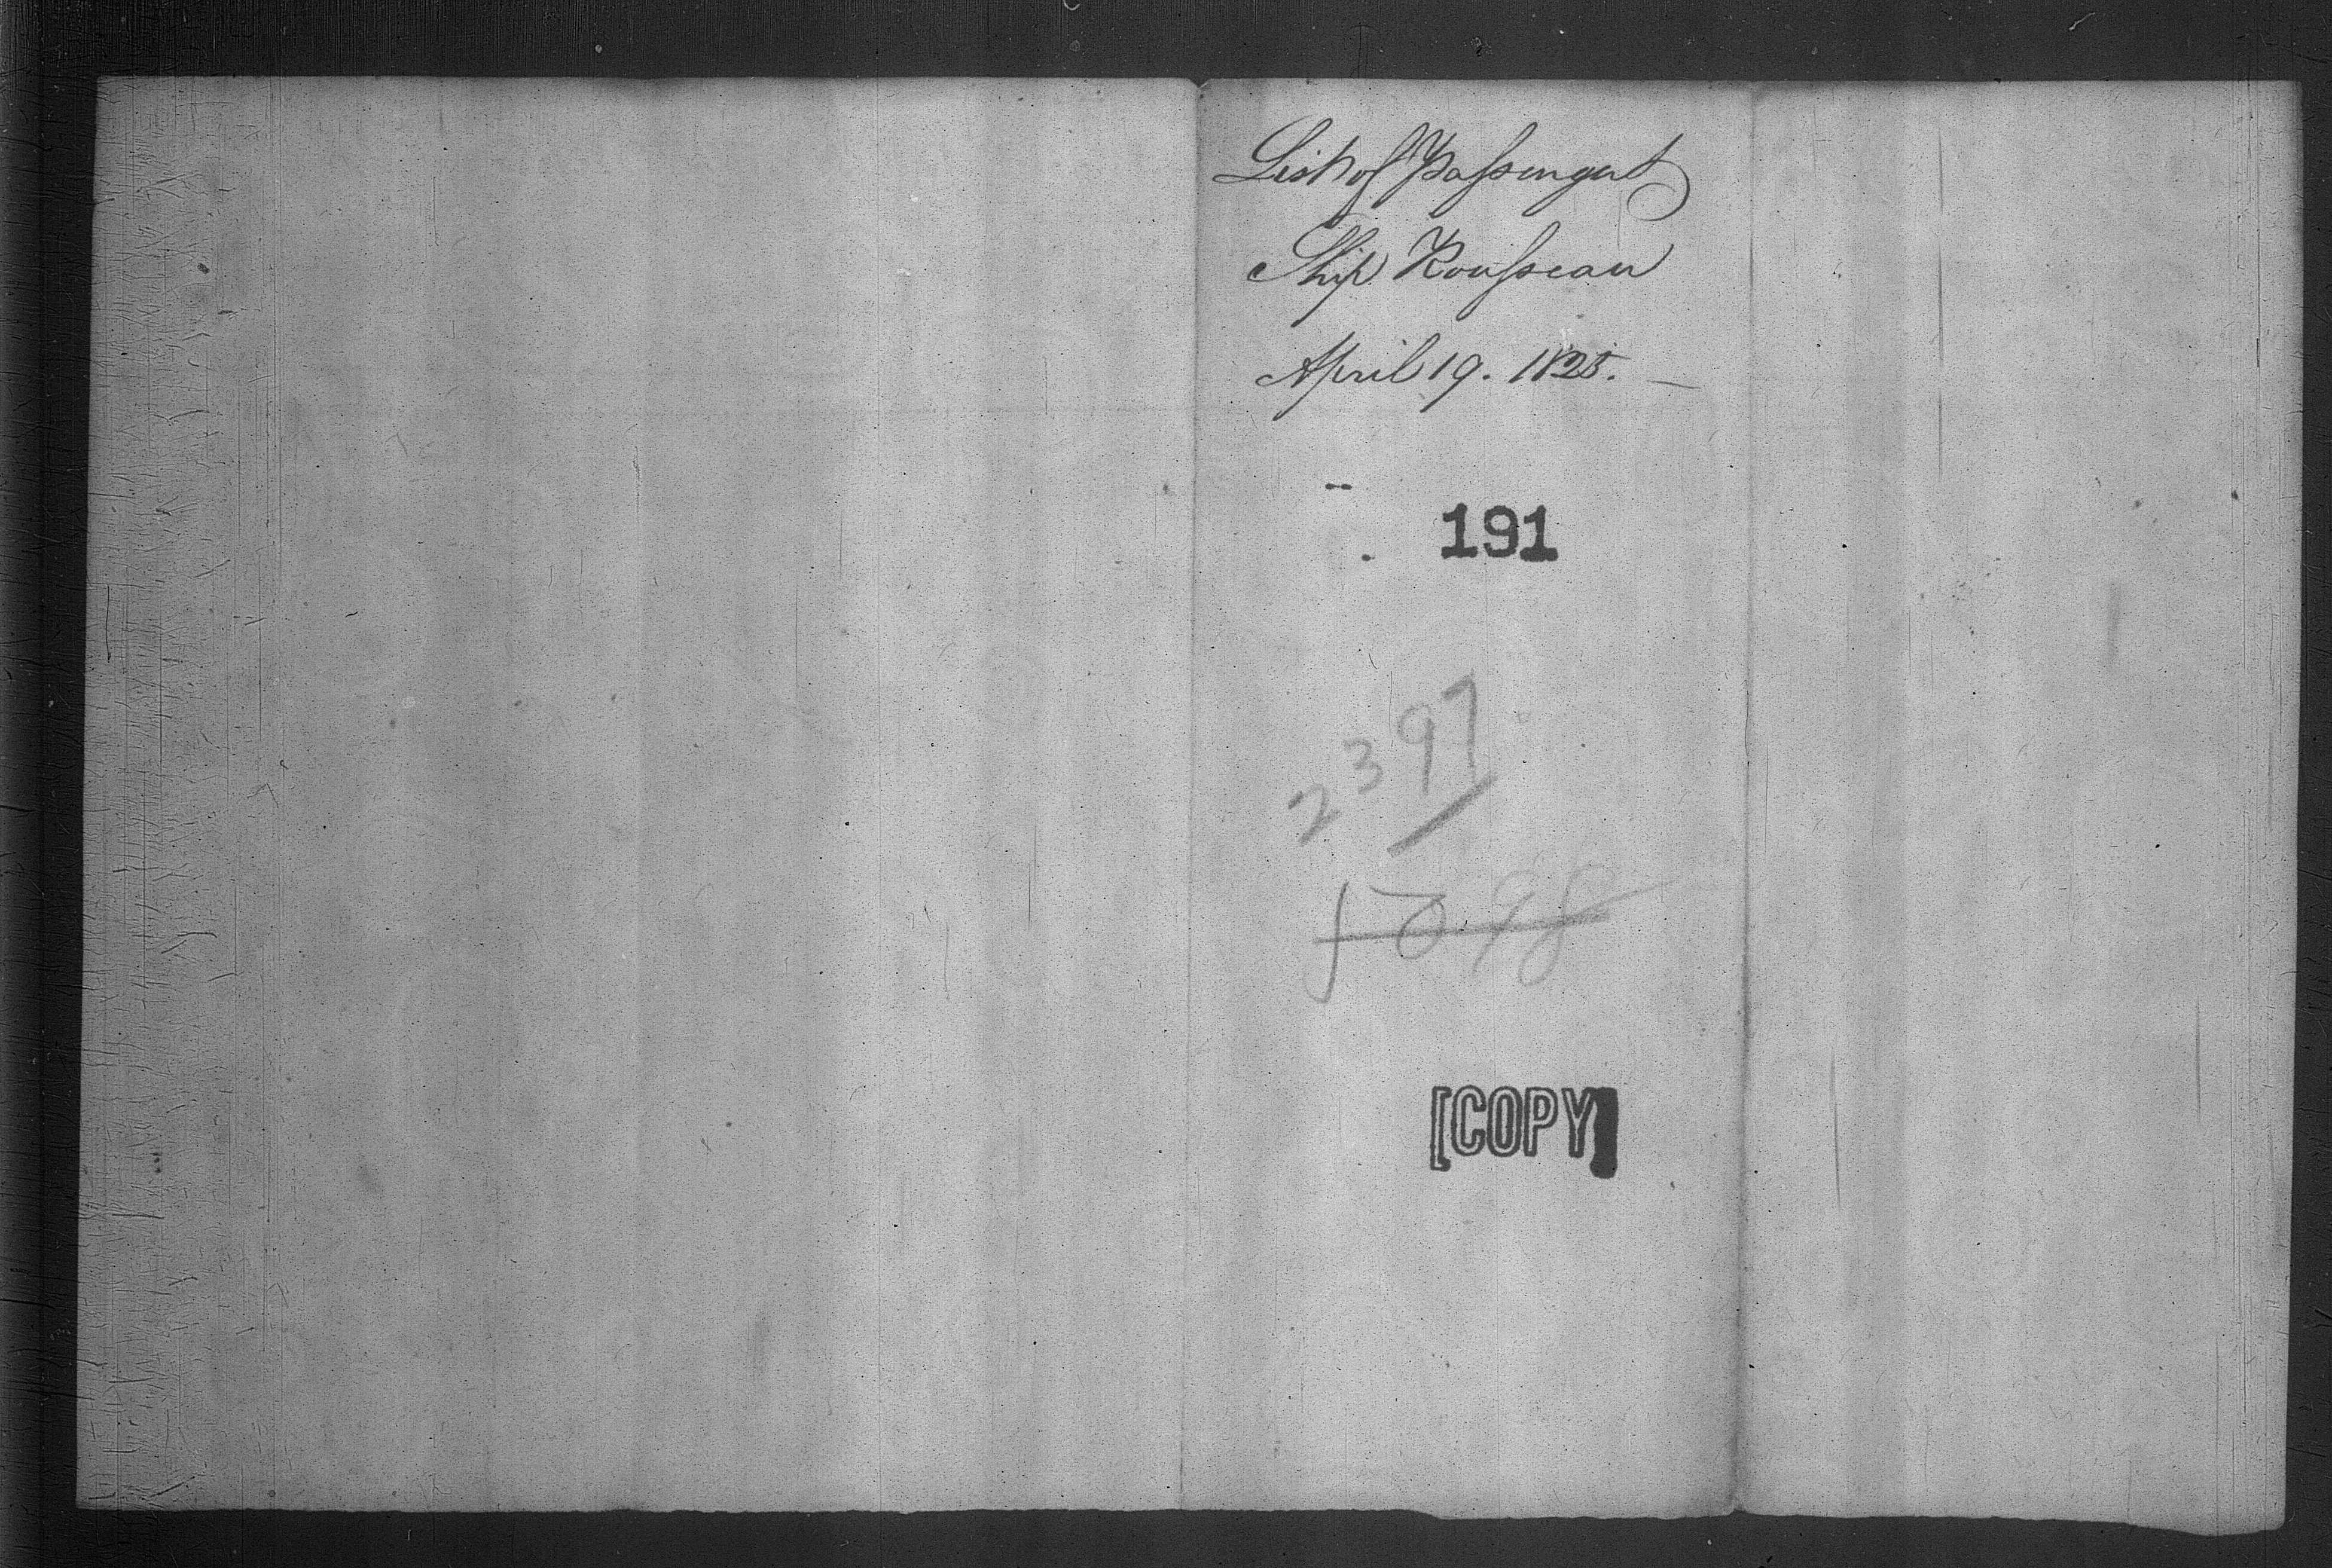 List of Passengers
Ship Rousseau
April 19. 1825.
191
2397
5098
[COPY]